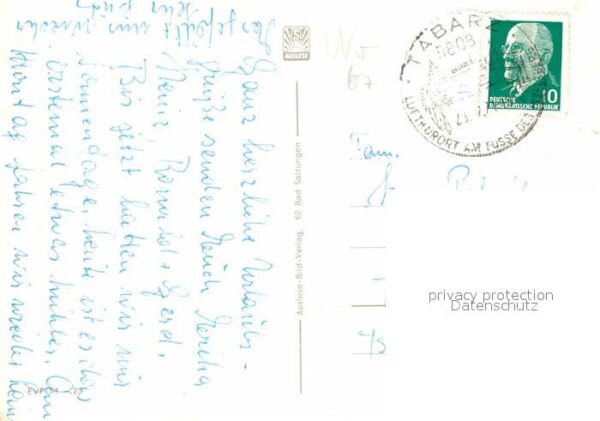 Ganz herzliche Urlaubs-
grüße senden Euch Marita
Heinz, Romy + Gerd.
Bis jetzt hatten wir nur
Sonnentage, heute ist es das
erstemal etwas kühler. Am
Montag fahren wir wieder heim
Es gefällt uns wieder
sehr gut
AUSLESE
Auslese-Bild-Verlag, 62 Bad Salzungen
EVP M -.25
Wo
67
TABARZ
5808
LUFTKURORT AM FUSSE DES
DEUTSCHE
DEMOKRATISCHE REPUBLIK
10
Fam.
privacy protection
Datenschutz